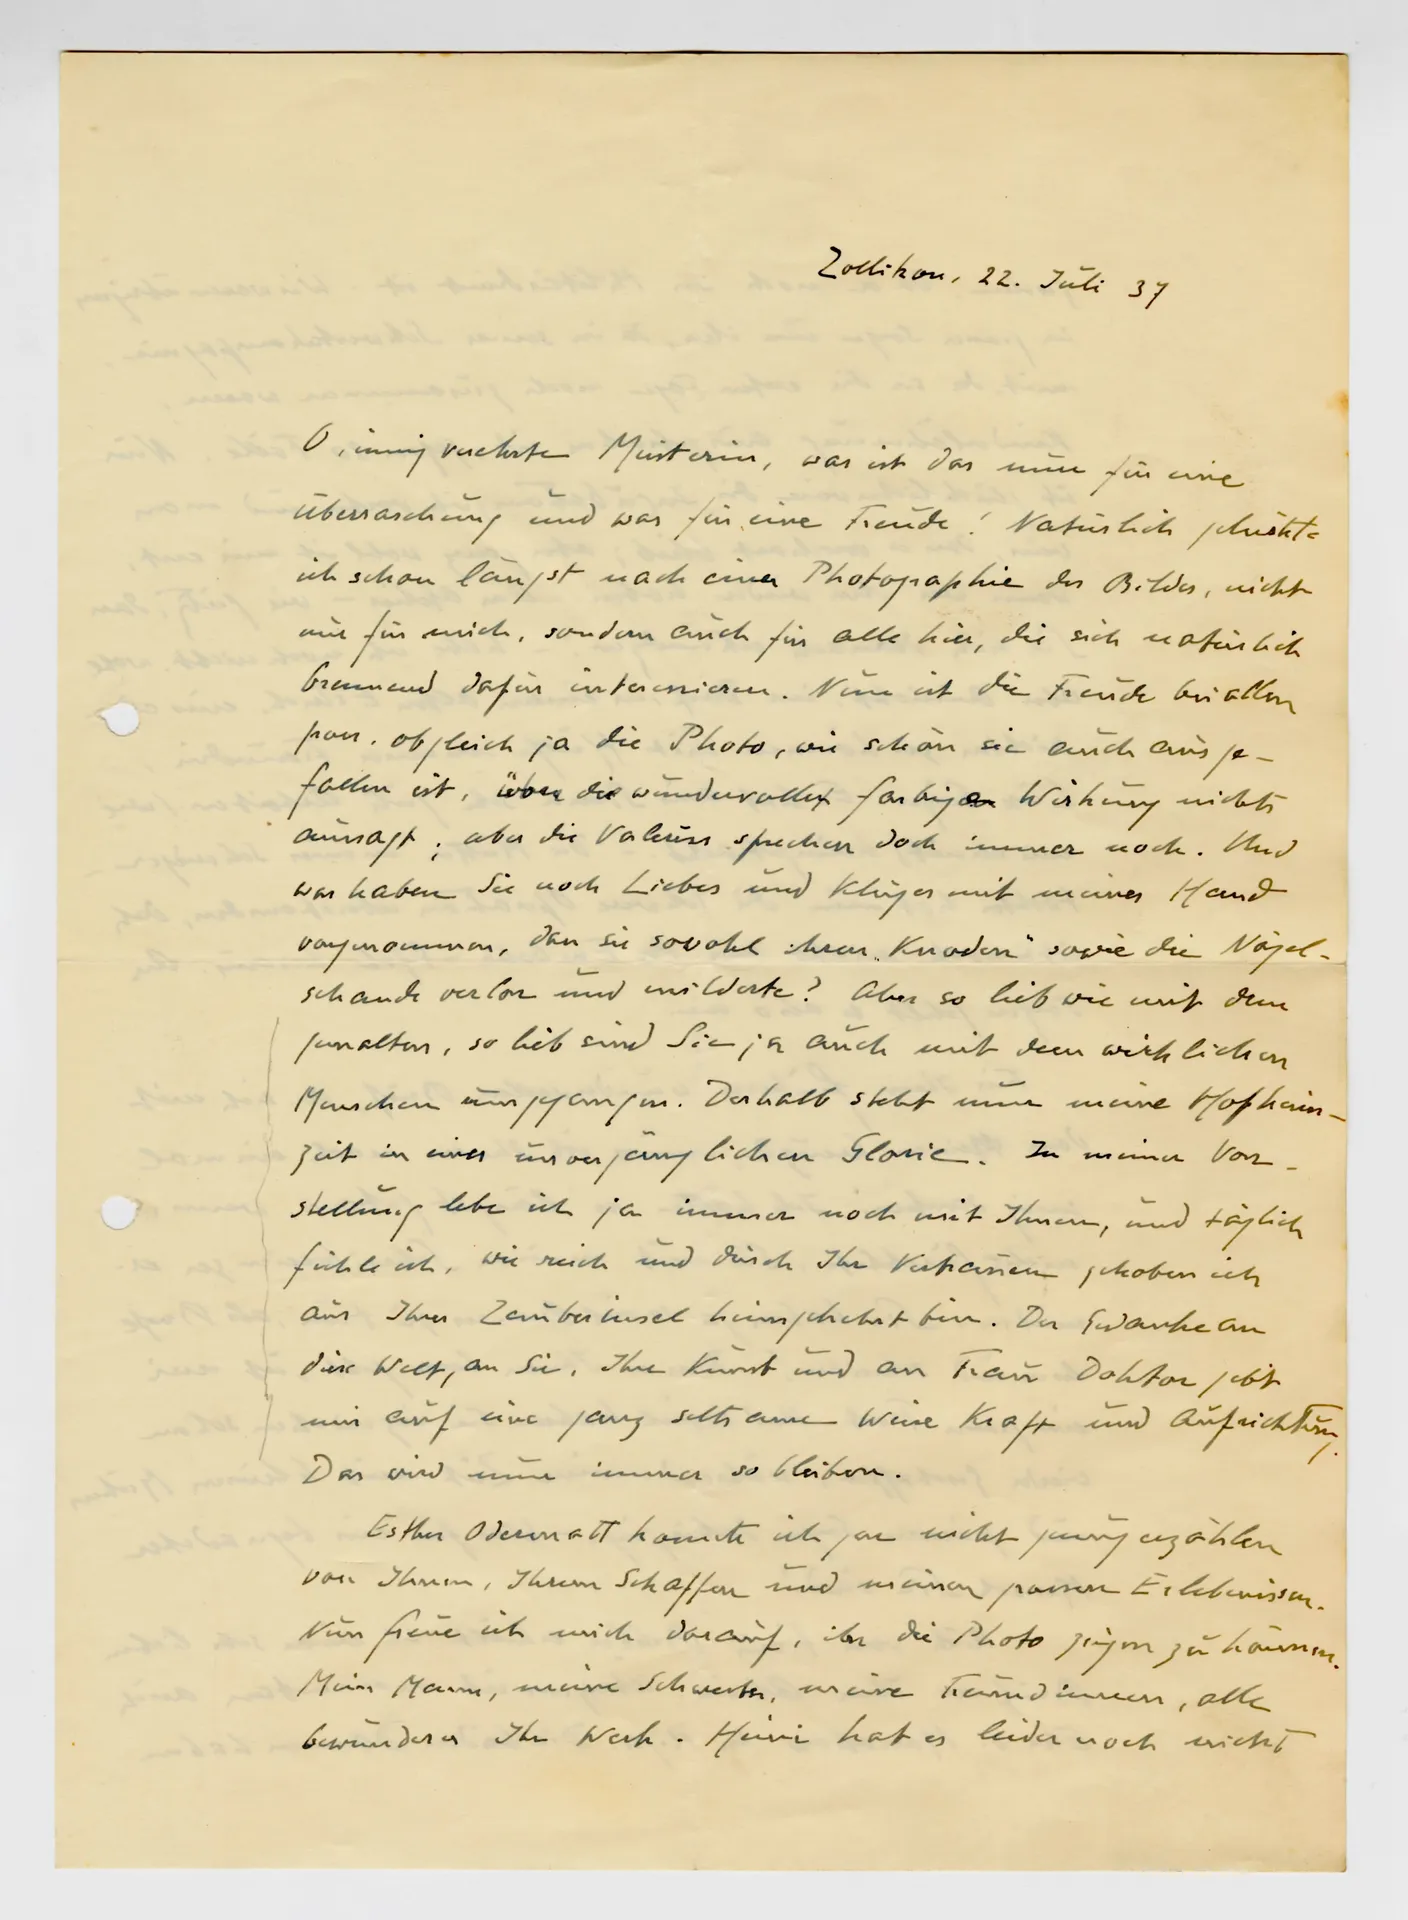 Zollikon, 22. Juli 37
O, innig verehrte Meisterin, was ist das nun für eine
Überraschung und was für eine Freude! Natürlich
ich schon längst nach einer Photographie des Bildes, nicht
nur für mich, sondern auch für alle hier, die sich natürlich
brennend dafür interessieren. Nun ist die Freude bei allen
gross, obgleich ja die Photo, wie schön sie auch ausge-
fallen ist, über die wundervolle farbige Wirkung nichts
aussagt; aber die Valeurs sprechen doch immer noch. Und
was haben Sie noch Liebes und Kluges mit meiner Hand
vorgenommen, dass sie sowohl ihren „Knoden" sowie die Nägel-
schande verlor und milderte? Aber so lieb wie mit dem
gemalten, so lieb sind Sie ja auch mit dem wirklichen
Menschen umgegangen. Deshalb steht nun meine Hofheim-
zeit in einer unvergänglichen Glorie. In meiner Vor-
stellung lebe ich ja immer noch mit Ihnen, und täglich
fühle ich, wie reich und durch Ihr Vertrauen gehoben ich
aus Ihrer Zauberinsel heimgekehrt bin. Der Gedanke an
diese Welt, an Sie, Ihre Kunst und an Frau Doktor gibt
mir auf eine ganz seltsame Weise Kraft und Aufrichtung.
Das wird nun immer so bleiben.
Esther Odermatt konnte ich gar nicht genug erzählen
von Ihnen, Ihrem Schaffen und meinen grossen Erlebnissen.
Nun freue ich mich darauf, ihr die Photo zeigen zu können.
Mein Mann, meine Schwester, meine Freundinnen, alle
bewundern Ihr Werk. Heini hat es leider noch nicht